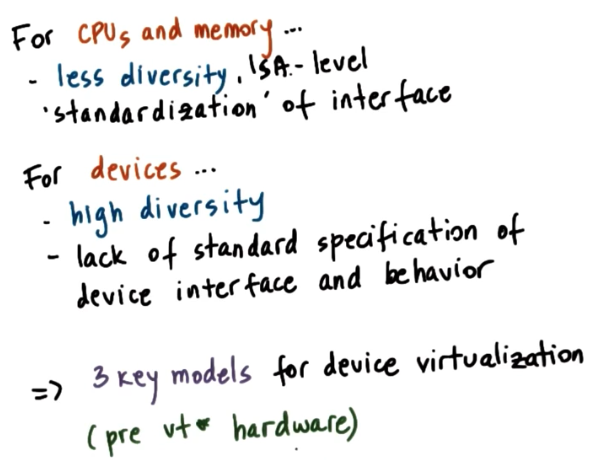 For CPUs and memory ...
- less diversity, ISA-level
'standardization' of interface
For devices ...
- high diversity
- lack of standard specification of
device interface and behavior
=> 3 key models for device virtualization
(pre vt* hardware)